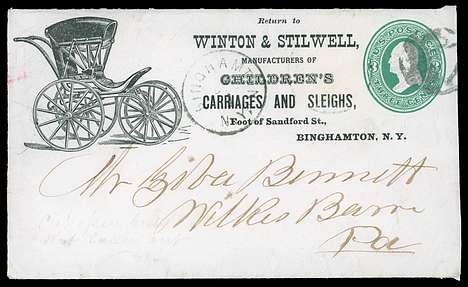 Return to
WINTON & STILWELL,
MANUFACTURERS OF
CHILDREN'S
CARRIAGES AND SLEIGHS,
Foot of Sandford St.,
BINGHAMTON, N. Y.
U.S. POSTAGE
BINGHAMTON
N.Y.
Mr Ziba Bennett
Wilkes Barre
Pa